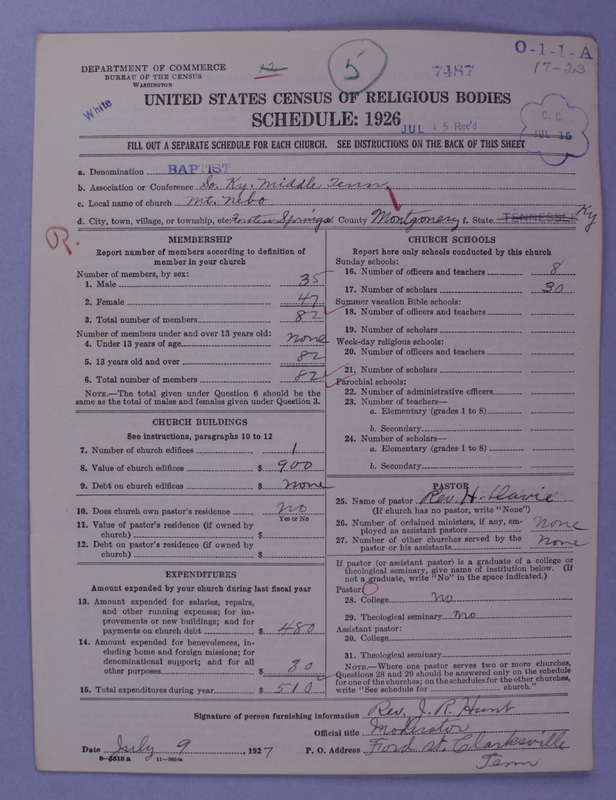 O-1-1-A
17-23
DEPARTMENT OF COMMERCE
BUREAU OF THE CENSUS
WASHINGTON
x2
5
7487
White
UNITED STATES CENSUS OF RELIGIOUS BODIES
SCHEDULE: 1926
JUL 15 Rec'd
C. C.
JUL 16
FILL OUT A SEPARATE SCHEDULE FOR EACH CHURCH. SEE INSTRUCTIONS ON THE BACK OF THIS SHEET
a. Denomination BAPTIST
b. Association or Conference So. Ky. Middle Tenn.
c. Local name of church Mt. Nebo
d. City, town, village, or township, etc. Springs e. County Montgomery f. State TENNESSEE Ky
R.
MEMBERSHIP
Report number of members according to definition of
member in your church
Number of members, by sex:
1. Male 35
2. Female 47
3. Total number of members 82
Number of members under and over 13 years old:
4. Under 13 years of age none
5. 13 years old and over 82
6. Total number of members 82
NOTE.—The total given under Question 6 should be the
same as the total of males and females given under Question 3.
CHURCH BUILDINGS
See instructions, paragraphs 10 to 12
7. Number of church edifices 1
8. Value of church edifices $ 900
9. Debt on church edifices $ none
10. Does church own pastor's residence no
Yes or No
11. Value of pastor's residence (if owned by
church) $
12. Debt on pastor's residence (if owned by
church) $
EXPENDITURES
Amount expended by your church during last fiscal year
13. Amount expended for salaries, repairs,
and other running expenses; for im-
provements or new buildings; and for
payments on church debt $ 480
14. Amount expended for benevolences, in-
cluding home and foreign missions; for
denominational support; and for all
other purposes $ 30
15. Total expenditures during year $ 510
CHURCH SCHOOLS
Report here only schools conducted by this church
Sunday schools:
16. Number of officers and teachers 8
17. Number of scholars 30
Summer vacation Bible schools:
18. Number of officers and teachers
19. Number of scholars
Week-day religious schools:
20. Number of officers and teachers
21. Number of scholars
Parochial schools:
22. Number of administrative officers
23. Number of teachers—
a. Elementary (grades 1 to 8)
b. Secondary
24. Number of scholars—
a. Elementary (grades 1 to 8)
b. Secondary
PASTOR
25. Name of pastor Rev. H. Davie
(If church has no pastor, write "None")
26. Number of ordained ministers, if any, em-
ployed as assistant pastors none
27. Number of other churches served by the
pastor or his assistants none
If pastor (or assistant pastor) is a graduate of a college or
theological seminary, give name of institution below. (If
not a graduate, write "No" in the space indicated.)
Pastor:
28. College no
29. Theological seminary no
Assistant pastor:
30. College
31. Theological seminary
NOTE.—Where one pastor serves two or more churches,
Questions 28 and 29 should be answered only on the schedule
for one of the churches; on the schedules for the other churches,
write "See schedule for church."
Signature of person furnishing information Rev. J. R. Hunt
Official title Moderator
Date July 9, 1927 P. O. Address Ford st. Clarksville
Tenn